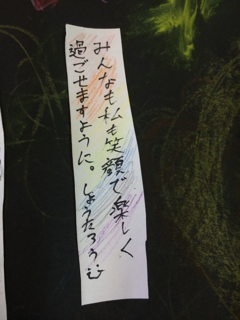 みんなも私も笑顔で楽しく
過ごせますように。しょうたろう